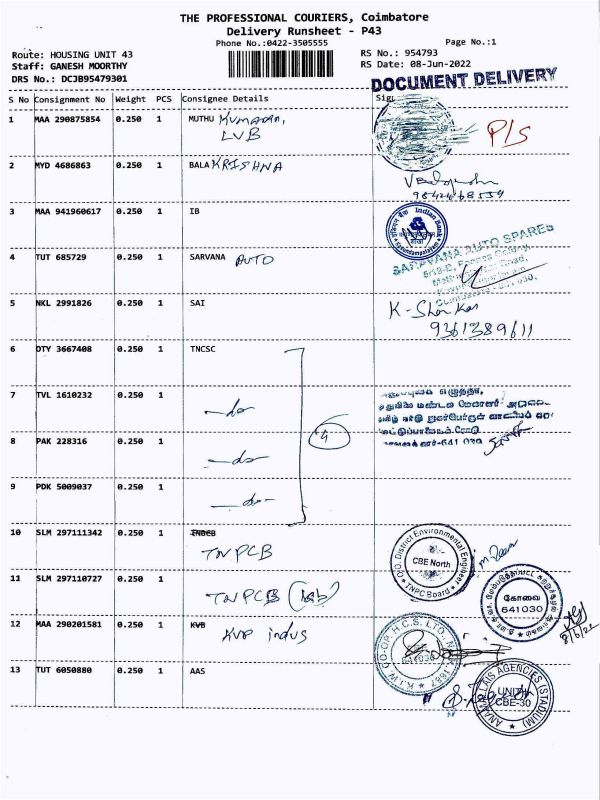 THE PROFESSIONAL COURIERS, Coimbatore
Delivery Runsheet - P43
Phone No.:0422-3505555
Page No.:1
Route: HOUSING UNIT 43
RS No.: 954793
Staff: GANESH MOORTHY
RS Date: 08-Jun-2022
DRS No.: DCJB95479301
DOCUMENT DELIVERY
S No Consignment No Weight PCS Consignee Details
1 MAA 290875854 0.250 1 MUTHU KUMARAN,
LVB
P/S
2 MYD 4686863 0.250 1 BALA KRISHNA
3 MAA 941960617 0.250 1 IB
Indian Bank
4 TUT 685729 0.250 1 SARVANA AUTO
SARAVANA AUTO SPARES
5 NKL 2991826 0.250 1 SAI
K-Shankar
9361389611
6 OTY 3667408 0.250 1 TNCSC
7 TVL 1610232 0.250 1 -do-
8 PAK 228316 0.250 1 -do-
4
9 PDK 5009037 0.250 1 -do-
10 SLM 297111342 0.250 1
TNPCB
O/O. District Environmental Engineer
CBE North
TNPC Board
11 SLM 297110727 0.250 1
TNPCB (lab)
கோவை
641030
12 MAA 290201581 0.250 1 KVB
KVP indus
8/6/22
13 TUT 6050880 0.250 1 AAS
ANAMALLAIS AGENCIES (STADIUM)
UNIT
CBE-30